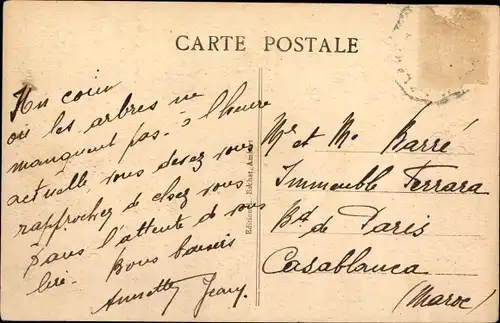 CARTE POSTALE
Un coin
où les arbres ne
manquent pas - à l'heure
actuelle vous devez vous
rapprochez de chez vous
Dans l'attente de vous
lire. Bons baisers
Jean.
Mr et Me Barré
Immeuble Ferrara
Bd de Paris
Casablanca
(Maroc)